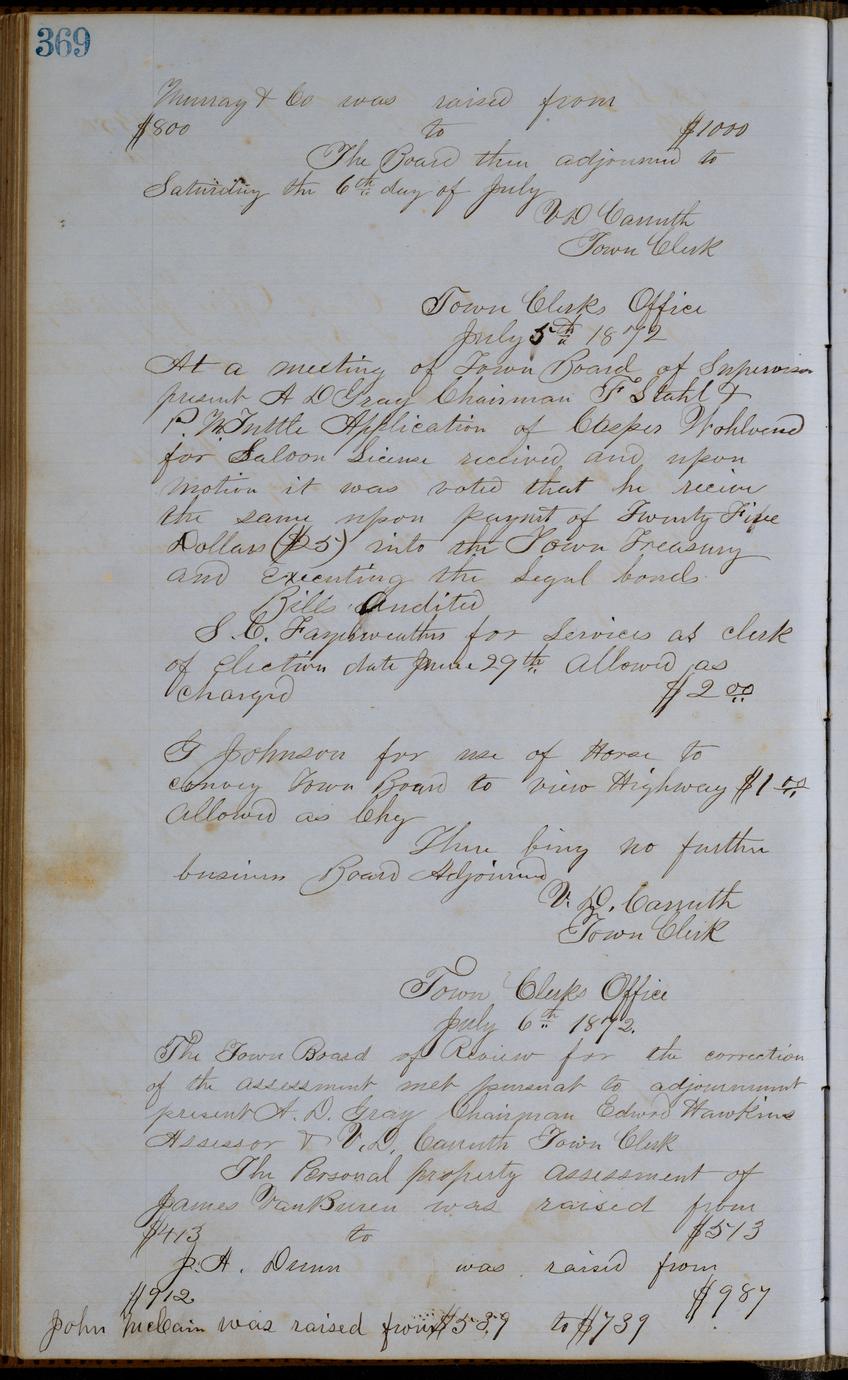 369
Murray & Co was raised from
$800 to $1000
The Board then adjourned to
Saturday the 6th day of July
V D Carruth
Town Clerk
Town Clerks Office
July 5th 1872
At a meeting of Town Board of Supervisors
present A D Gray Chairman F Stahl &
P. W Tuttle Application of Casper Wohlvend
for Saloon License received and upon
motion it was voted that he recieve
the same upon paymt of Twenty Five
Dollars ($25) into the Town Treasury
and Executing the Legal bonds
Bills Audited
S. C. Fayerweather for Services as clerk
of Election date June 29th Allowed as
Charged $2 00
G Johnson for use of Horse to
convey Town Board to view Highway $1 00
Allowed as Chg
There being no further
business Board Adjourned
V. D. Carruth
Town Clerk
Town Clerks Office
July 6th 1872.
The Town Board of Review for the correction
of the assessment met pursuat to adjournment
present A. D. Gray Chairman Edwrd Hawkins
Assessor & V. D. Carruth Town Clerk
The Personal property assessment of
James VanBuren was raised from
$413 to $513
J. A. Dunn was raised from
$912 $987
John McCain was raised from $539 to $739